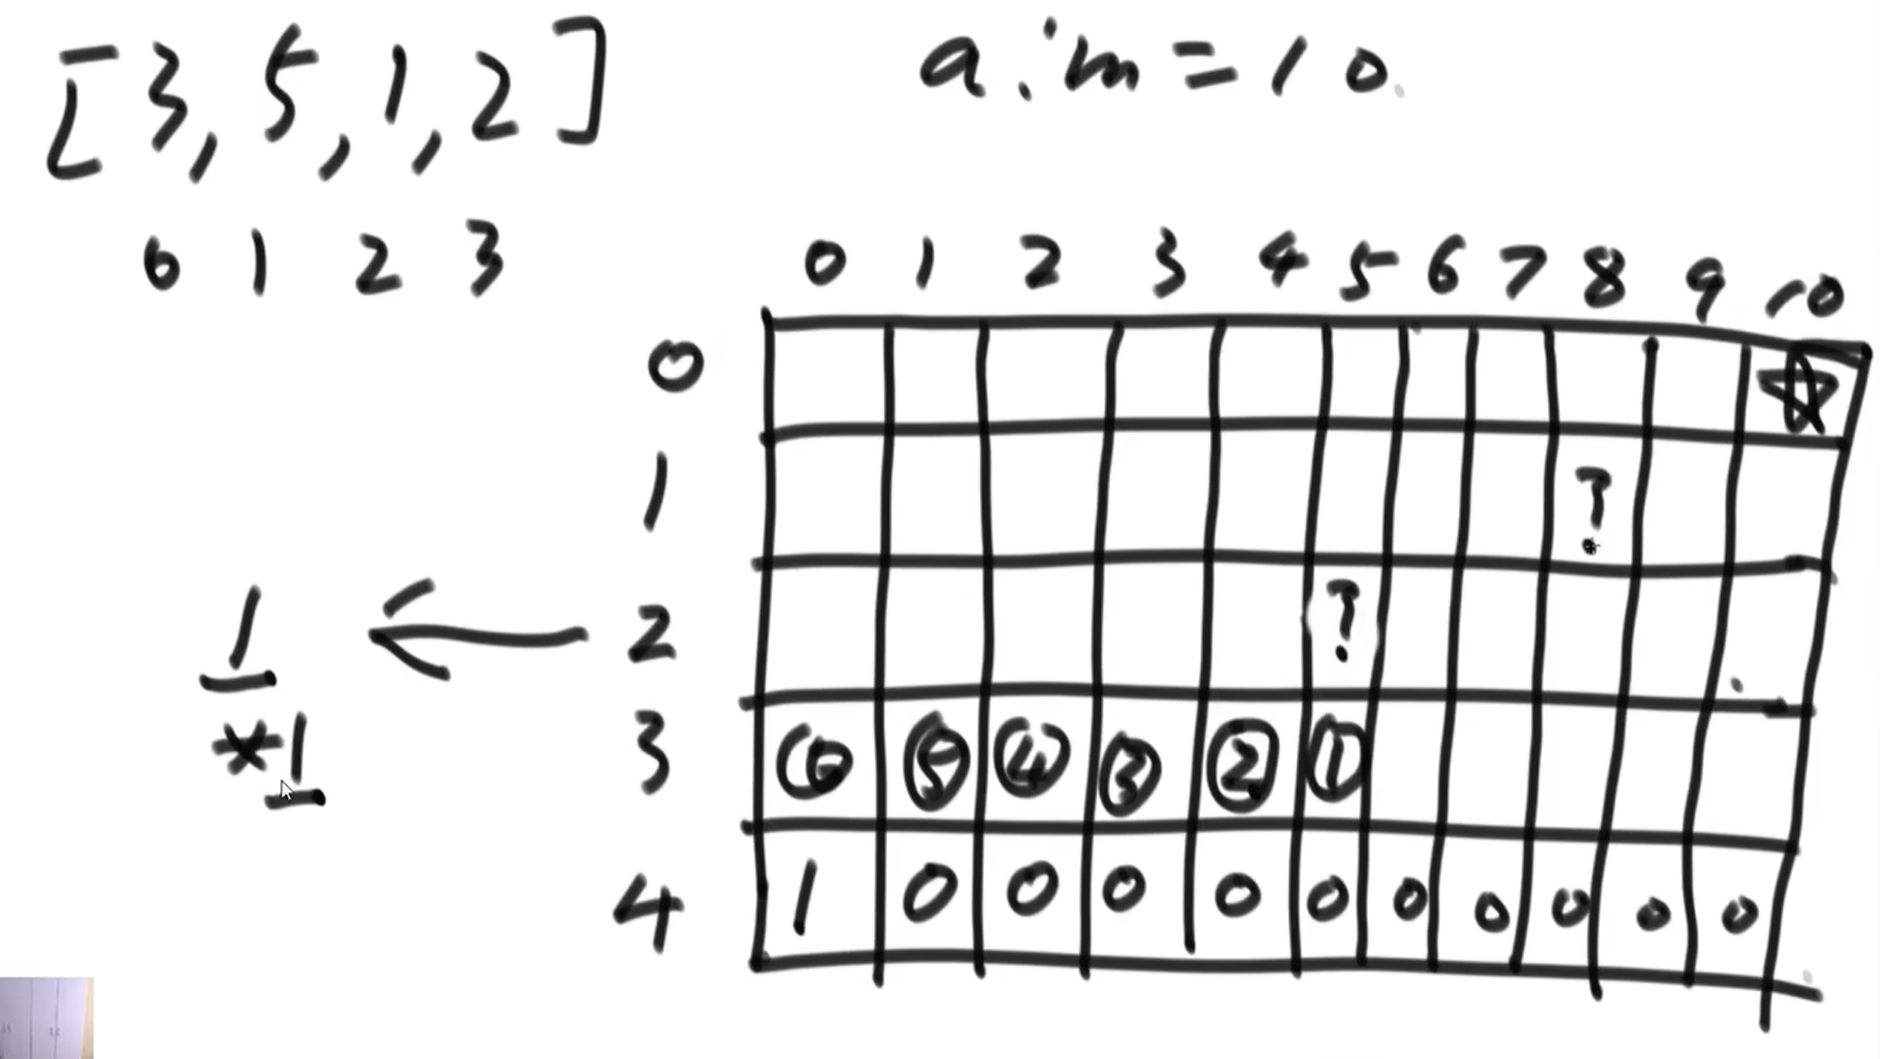 [3,5,1,2]
aim=10
0 1 2 3
0 1 2 3 4 5 6 7 8 9 10
0
1 ?
1 2 ?
*1
3 ⑥ ⑤ ④ ③ ② ①
4 1 0 0 0 0 0 0 0 0 0 0